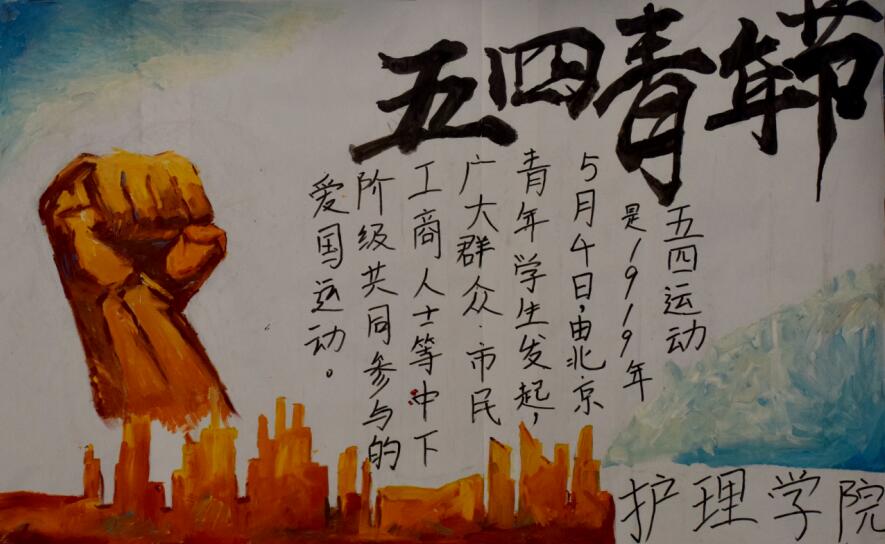 五四青年节
五四运动
是1919年
5月4日,由北京
青年学生发起,
广大群众、市民
工商人士等中下
阶级共同参与的
爱国运动。
护理学院